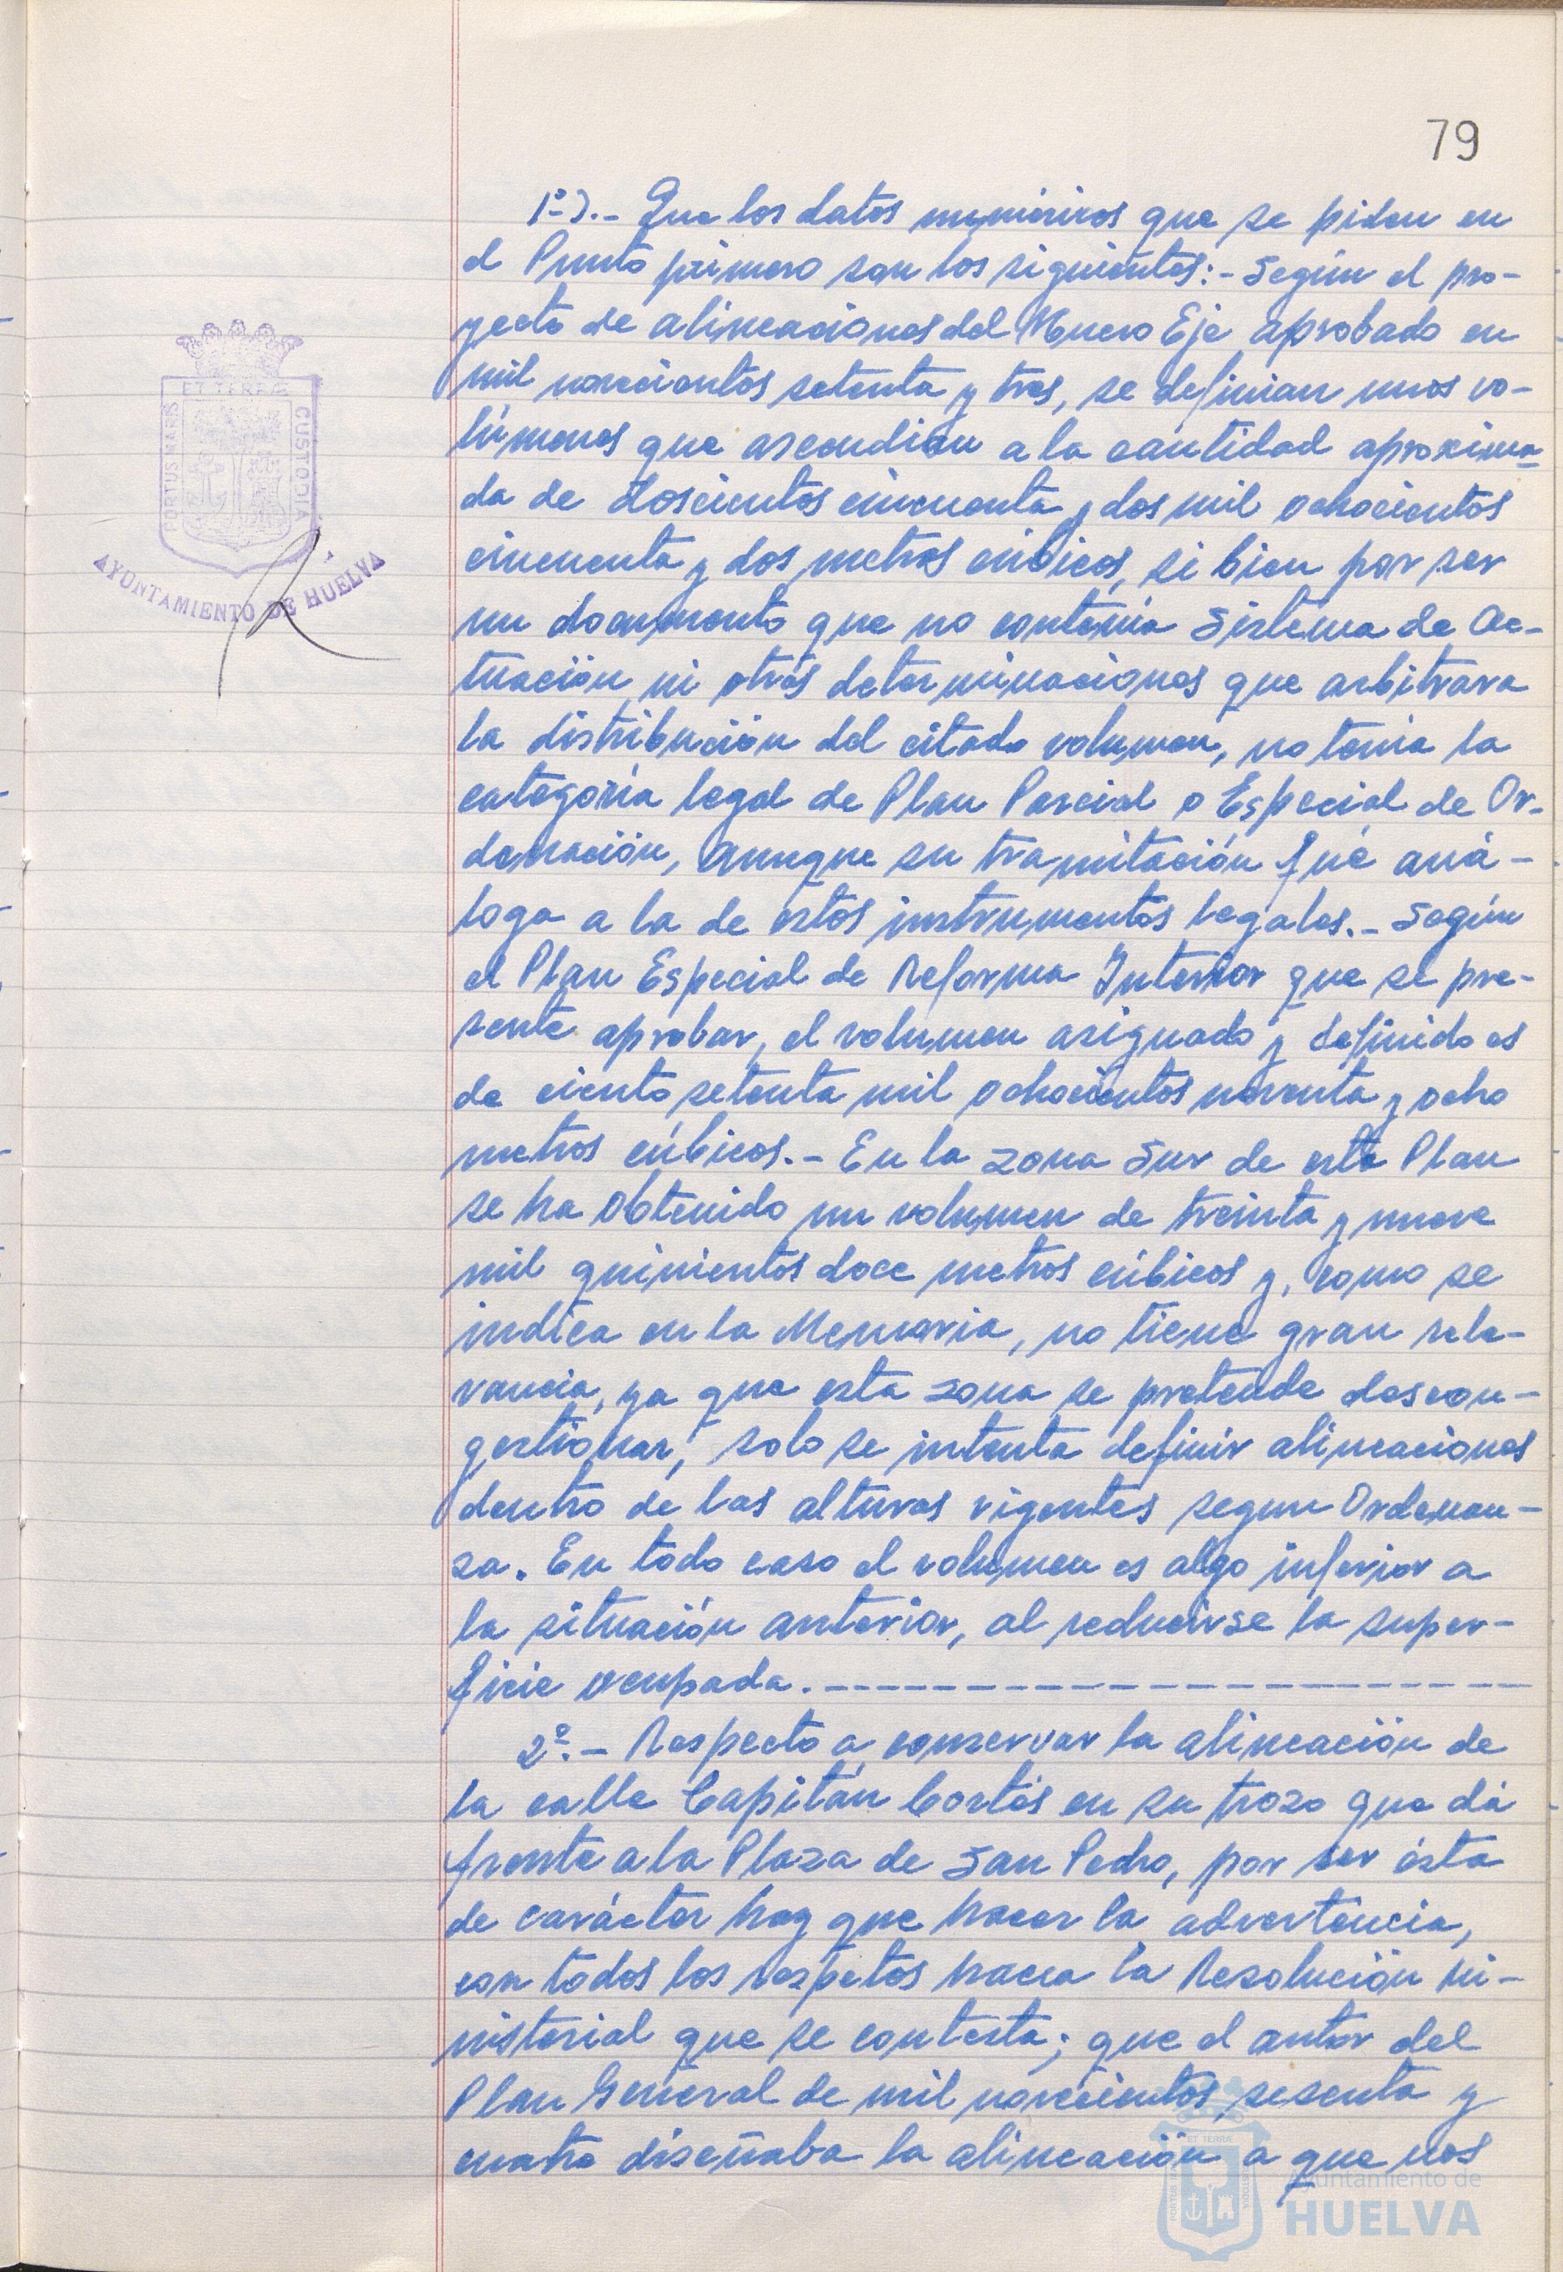 79
1º).- Que los datos numéricos que se piden en
el Punto primero son los siguientes:- Según el pro-
yecto de alineaciones del Nuevo Eje aprobado en
mil novecientos setenta y tres, se definian unos vo-
lúmenes que ascendian a la cantidad aproxima-
da de doscientos cincuenta y dos mil ochocientos
cincuenta y dos metros cúbicos, si bien por ser
un documento que no contenía Sistema de Ac-
tuación ni otras determinaciones que arbitrara
la distribución del citado volumen, no tenía la
categoría legal de Plan Parcial o Especial de Or-
denación, aunque su tramitación fué aná-
loga a la de estos instrumentos legales.- Según
el Plan Especial de Reforma Interior que se pre-
sente aprobar, el volumen asignado y definido es
de ciento setenta mil ochocientos noventa y ocho
metros cúbicos.- En la zona Sur de este Plan
se ha obtenido un volumen de treinta y nueve
mil quinientos doce metros cúbicos y, como se
indica en la Memoria, no tiene gran rele-
vancia, ya que esta zona se pretende descon-
gestionar, solo se intenta definir alineaciones
dentro de las alturas vigentes segun Ordenan-
za. En todo caso el volumen es algo inferior a
la situación anterior, al reducirse la super-
ficie ocupada.
2º.- Respecto a conservar la alineación de
la calle Capitán Cortés en su trozo que dá
frente a la Plaza de San Pedro, por ser ésta
de carácter hay que hacer la advertencia,
con todos los respetos hacia la Resolución Mi-
nisterial que se contesta; que el autor del
Plan General de mil novecientos, sesenta y
cuatro diseñaba la alineación a que nos
PORTUS MARIS ET TERRAE CUSTODIA
AYUNTAMIENTO DE HUELVA
Ayuntamiento de
HUELVA